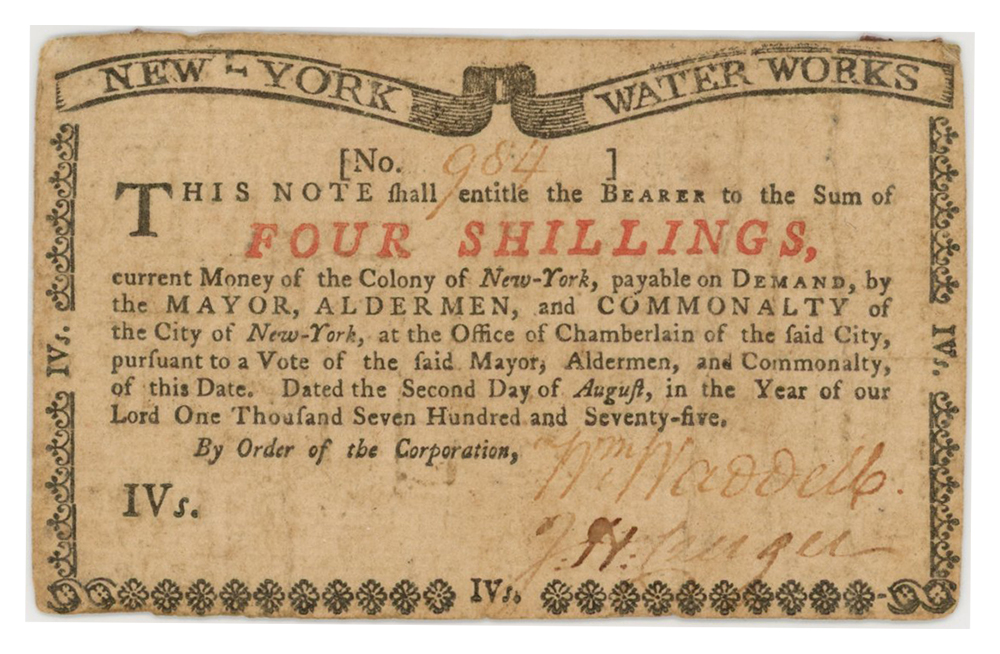 NEW-YORK WATER WORKS
[No. 984 ]
THIS NOTE ſhall entitle the BEARER to the Sum of
FOUR SHILLINGS,
current Money of the Colony of New-York, payable on DEMAND, by
the MAYOR, ALDERMEN, and COMMONALTY of
the City of New-York, at the Office of Chamberlain of the ſaid City,
purſuant to a Vote of the ſaid Mayor, Aldermen, and Commonalty,
of this Date. Dated the Second Day of Auguſt, in the Year of our
Lord One Thouſand Seven Hundred and Seventy-five.
By Order of the Corporation,
Wm. Waddell.
IVs.
J. H. Cruger
IVs.
IVs.
IVs.